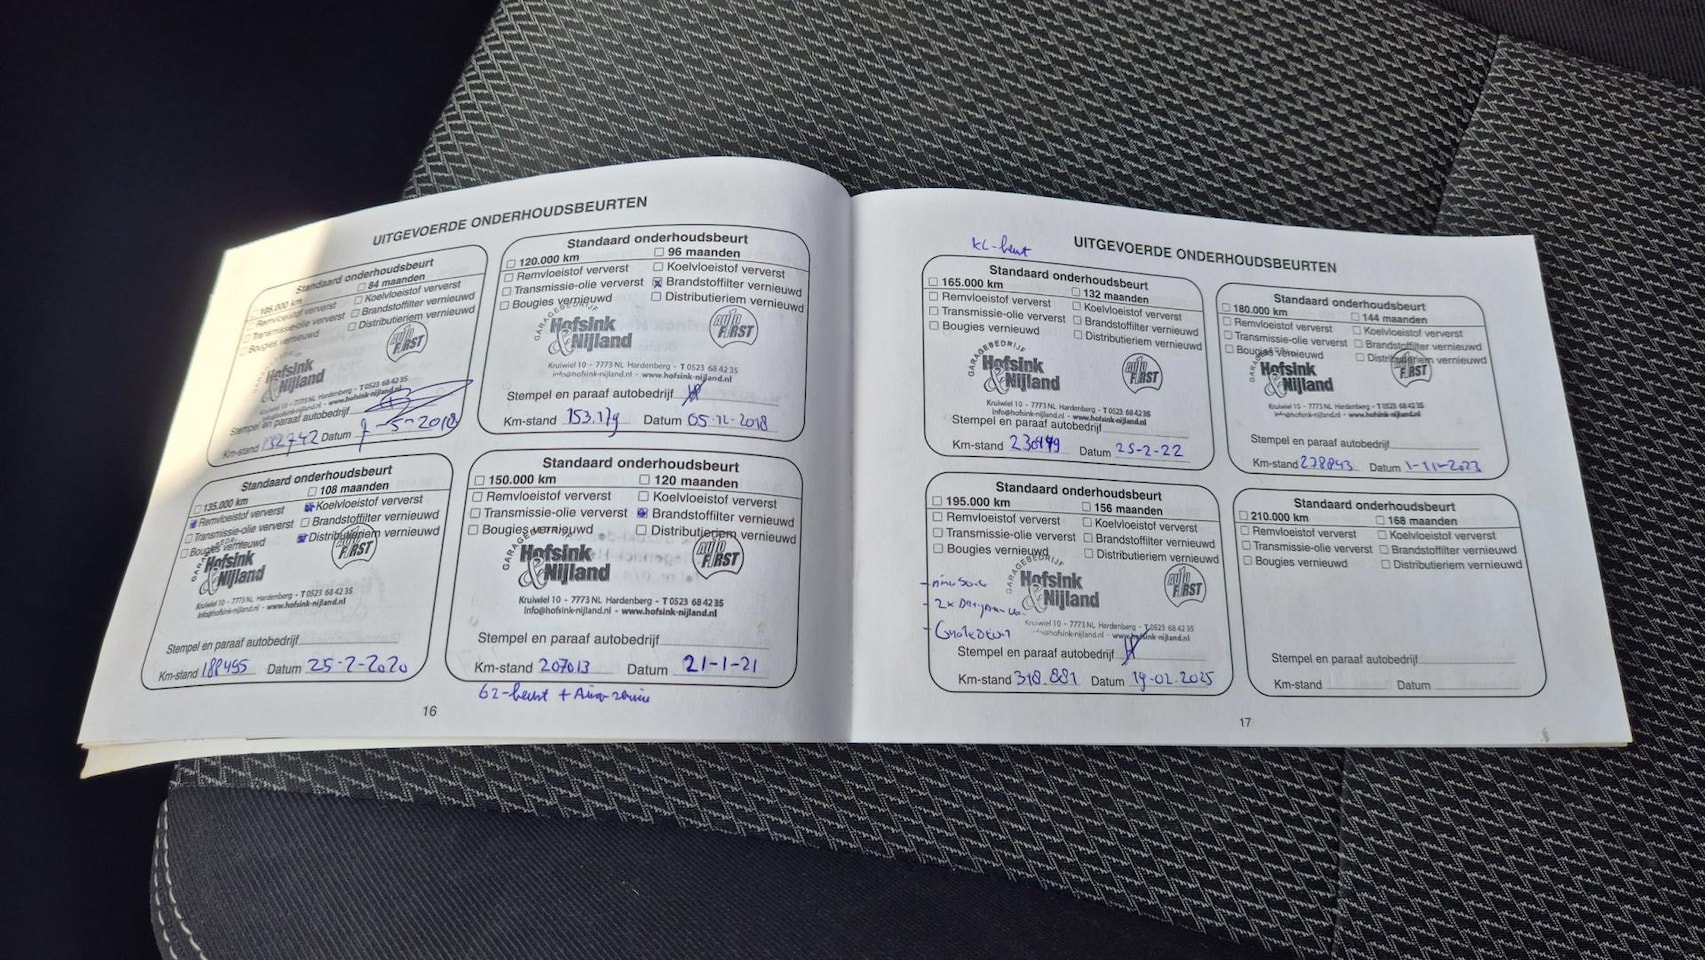 UITGEVOERDE ONDERHOUDSBEURTEN
Standaard onderhoudsbeurt
☐ 105.000 km ☐ 84 maanden
☐ Remvloeistof ververst ☐ Koelvloeistof ververst
☐ Transmissie-olie ververst ☐ Brandstoffilter vernieuwd
☐ Bougies vernieuwd ☐ Distributieriem vernieuwd
Hofsink & Nijland
auto FIRST
Kruiwiel 10 - 7773 NL Hardenberg - T 0523 68 42 35
info@hofsink-nijland.nl - www.hofsink-nijland.nl
Stempel en paraaf autobedrijf
Km-stand 132742 Datum 9-5-2018
Standaard onderhoudsbeurt
☐ 120.000 km ☐ 96 maanden
☐ Remvloeistof ververst ☐ Koelvloeistof ververst
☐ Transmissie-olie ververst ☒ Brandstoffilter vernieuwd
☐ Bougies vernieuwd ☐ Distributieriem vernieuwd
GARAGEBEDRIJF
Hofsink & Nijland
auto FIRST
Kruiwiel 10 - 7773 NL Hardenberg - T 0523 68 42 35
info@hofsink-nijland.nl - www.hofsink-nijland.nl
Stempel en paraaf autobedrijf
Km-stand 153.179 Datum 05-12-2018
Standaard onderhoudsbeurt
☐ 135.000 km ☒ 108 maanden
☒ Remvloeistof ververst ☒ Koelvloeistof ververst
☐ Transmissie-olie ververst ☐ Brandstoffilter vernieuwd
☐ Bougies vernieuwd ☒ Distributieriem vernieuwd
Hofsink & Nijland
auto FIRST
Kruiwiel 10 - 7773 NL Hardenberg - T 0523 68 42 35
info@hofsink-nijland.nl - www.hofsink-nijland.nl
Stempel en paraaf autobedrijf
Km-stand 188455 Datum 25-2-2020
Standaard onderhoudsbeurt
☐ 150.000 km ☐ 120 maanden
☐ Remvloeistof ververst ☐ Koelvloeistof ververst
☐ Transmissie-olie ververst ☒ Brandstoffilter vernieuwd
☐ Bougies vernieuwd ☐ Distributieriem vernieuwd
GARAGEBEDRIJF
Hofsink & Nijland
auto FIRST
Kruiwiel 10 - 7773 NL Hardenberg - T 0523 68 42 35
info@hofsink-nijland.nl - www.hofsink-nijland.nl
Stempel en paraaf autobedrijf
Km-stand 207013 Datum 21-1-21
16
UITGEVOERDE ONDERHOUDSBEURTEN
KL-beurt
Standaard onderhoudsbeurt
☐ 165.000 km ☐ 132 maanden
☐ Remvloeistof ververst ☐ Koelvloeistof ververst
☐ Transmissie-olie ververst ☐ Brandstoffilter vernieuwd
☐ Bougies vernieuwd ☐ Distributieriem vernieuwd
GARAGEBEDRIJF
Hofsink & Nijland
auto FIRST
Kruiwiel 10 - 7773 NL Hardenberg - T 0523 68 42 35
info@hofsink-nijland.nl - www.hofsink-nijland.nl
Stempel en paraaf autobedrijf
Km-stand Datum 25-2-22
Standaard onderhoudsbeurt
☐ 180.000 km ☐ 144 maanden
☐ Remvloeistof ververst ☐ Koelvloeistof ververst
☐ Transmissie-olie ververst ☐ Brandstoffilter vernieuwd
☐ Bougies vernieuwd ☐ Distributieriem vernieuwd
Hofsink & Nijland
auto FIRST
Kruiwiel 10 - 7773 NL Hardenberg - T 0523 68 42 35
info@hofsink-nijland.nl - www.hofsink-nijland.nl
Stempel en paraaf autobedrijf
Km-stand 278843 Datum 1-11-2023
Standaard onderhoudsbeurt
☐ 195.000 km ☐ 156 maanden
☐ Remvloeistof ververst ☐ Koelvloeistof ververst
☐ Transmissie-olie ververst ☐ Brandstoffilter vernieuwd
☐ Bougies vernieuwd ☐ Distributieriem vernieuwd
GARAGEBEDRIJF
Hofsink & Nijland
auto FIRST
Kruiwiel 10 - 7773 NL Hardenberg - T 0523 68 42 35
www.hofsink-nijland.nl
- Grote Beurt
Stempel en paraaf autobedrijf
Km-stand 318.881 Datum 19-02-2025
Standaard onderhoudsbeurt
☐ 210.000 km ☐ 168 maanden
☐ Remvloeistof ververst ☐ Koelvloeistof ververst
☐ Transmissie-olie ververst ☐ Brandstoffilter vernieuwd
☐ Bougies vernieuwd ☐ Distributieriem vernieuwd
Stempel en paraaf autobedrijf
Km-stand Datum
17